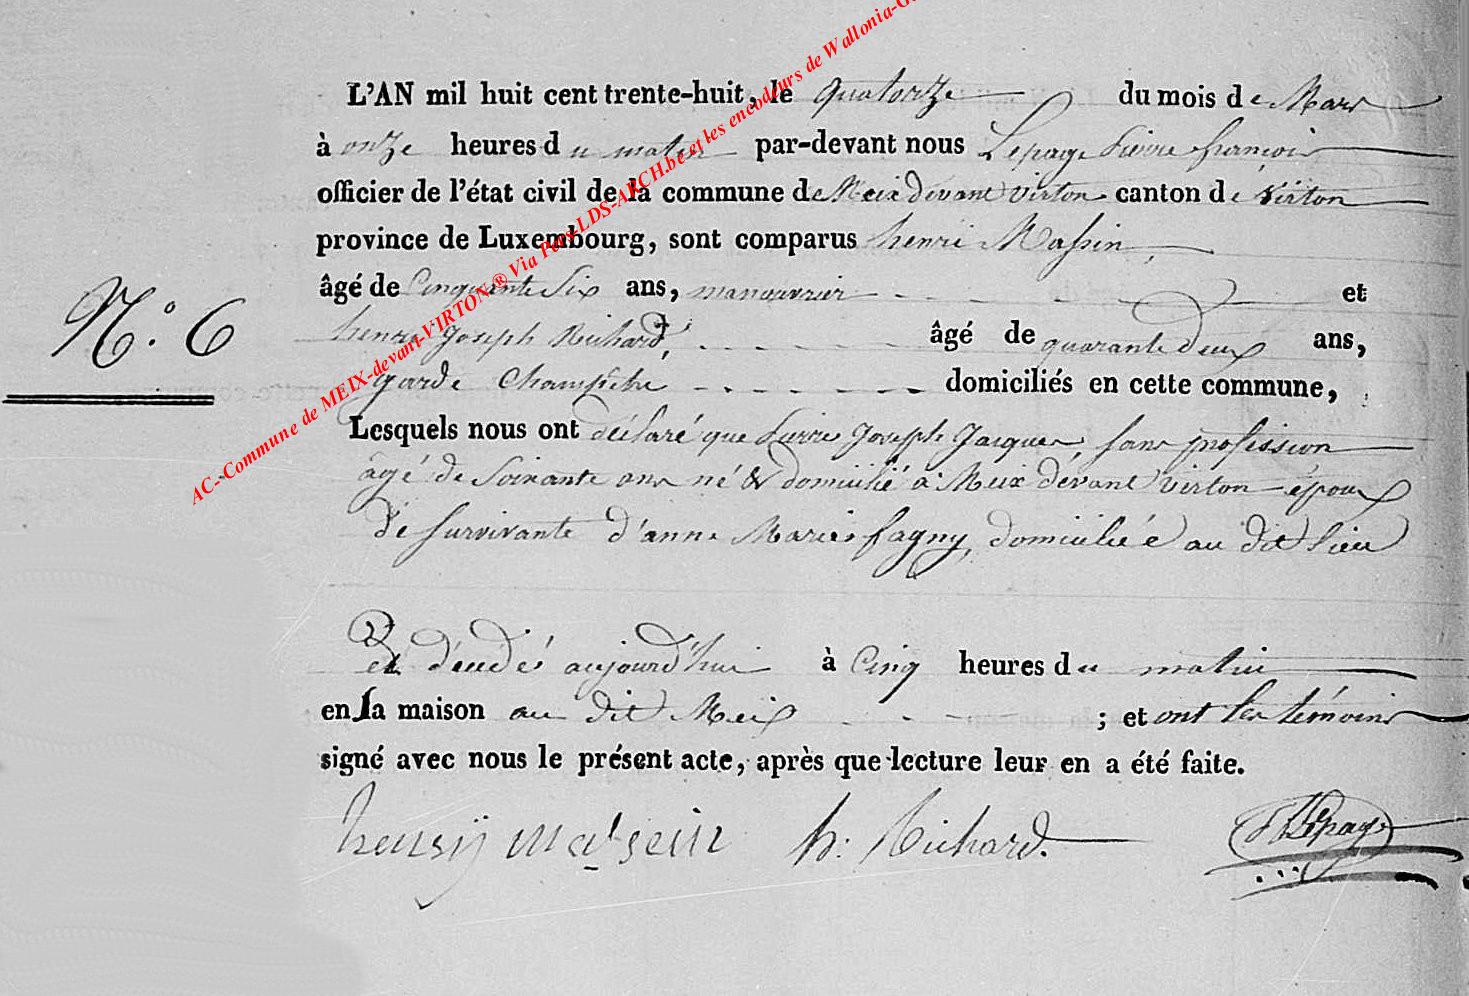 L'AN mil huit cent trente-huit, le quatorze du mois de Mars
à onze heures du matin par-devant nous Lepage Pierre françois
officier de l'état civil de la commune de Meix devant virton canton de virton
province de Luxembourg, sont comparus henri Massin
âgé de Cinquante Six ans, manouvrier et
N.º 6
henri Joseph Richard, âgé de quarante deux ans,
garde Champêtre domiciliés en cette commune,
Lesquels nous ont déclaré que Pierre Joseph Jacques, sans profession
âgé de Soixante ans né & domicilié à Meix dévant virton époux
dé survivante d'anne Marie fagny, domiciliée au dit lieu
Est décédé aujourd'hui à Cinq heures du matin
en sa maison au dit Meix ; et ont les témoins
signé avec nous le présent acte, après que lecture leur en a été faite.
henrÿ massein h: Richard. Lepage
AC-Commune de MEIX-devant-VIRTON ® Via Pers-LDS-ARCH.be et les encodeurs de Wallonia-G